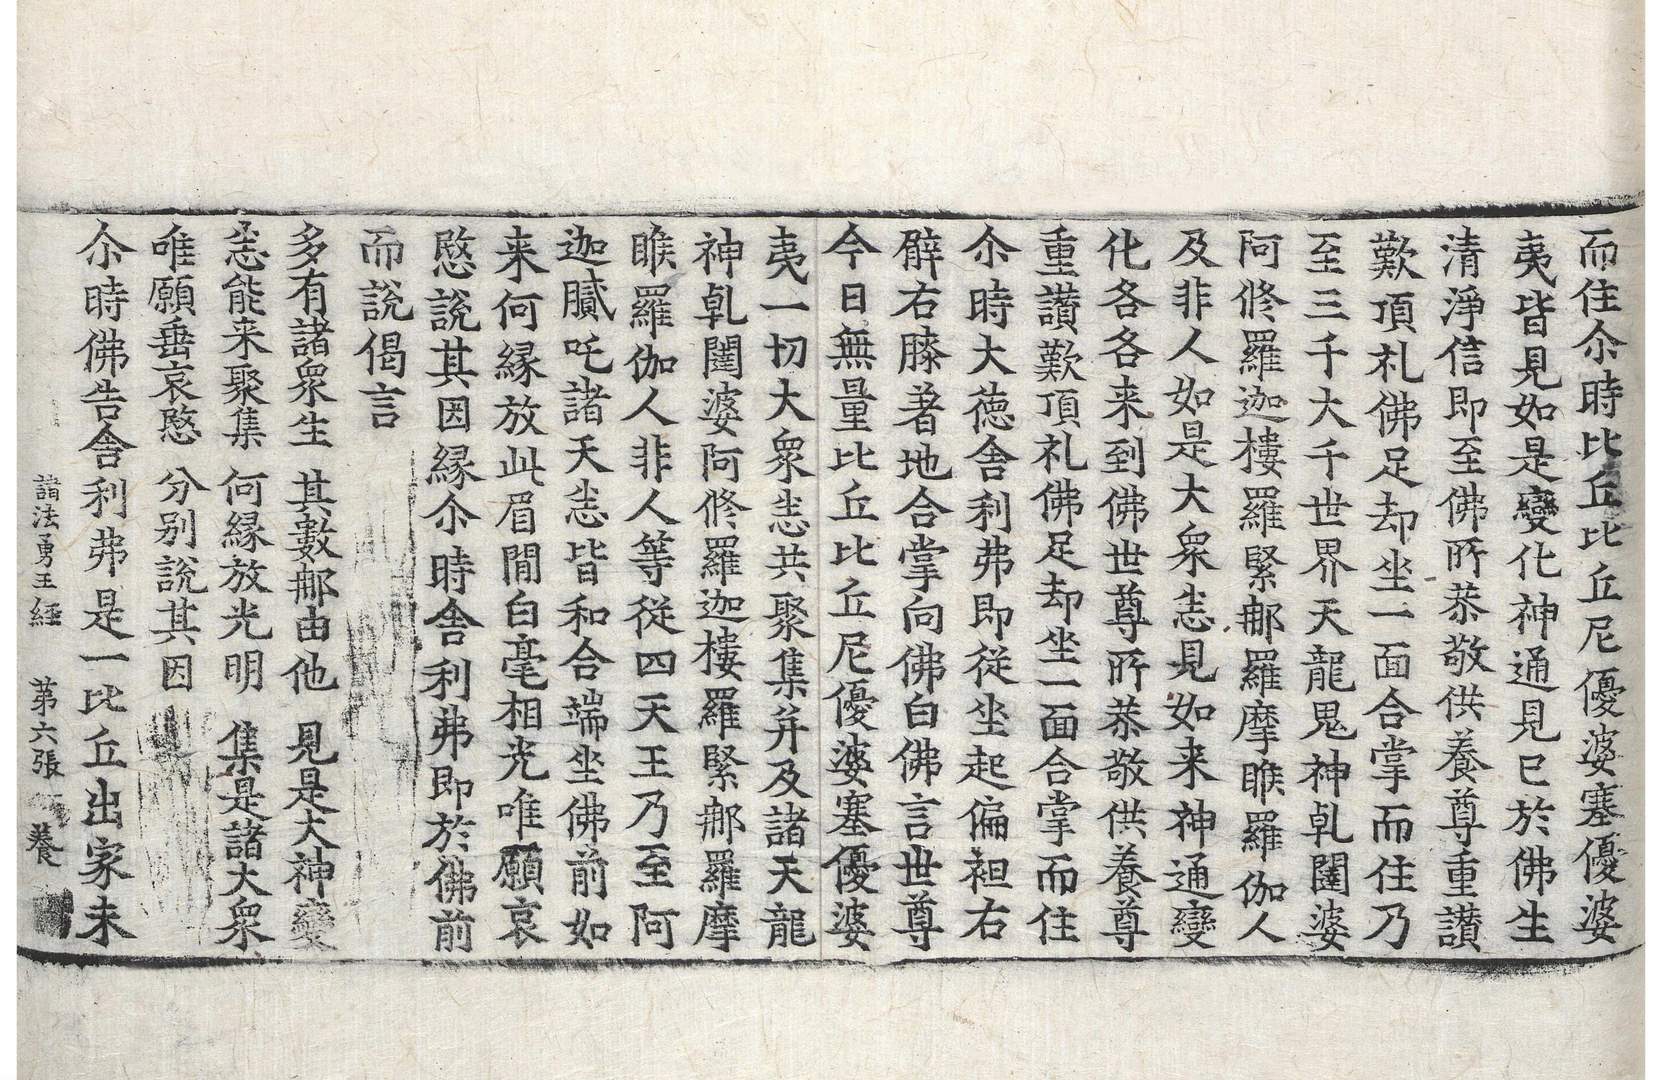 而住尒時比丘比丘尼優婆塞優婆
夷皆見如是變化神通見已於佛生
清淨信即至佛所恭敬供養尊重讃
歎頂礼佛足却坐一面合掌而住乃
至三千大千世界天龍鬼神乹闥婆
阿修羅迦樓羅緊那羅摩睺羅伽人
及非人如是大衆悉見如来神通變
化各各来到佛世尊所恭敬供養尊
重讃歎頂礼佛足却坐一面合掌而住
尒時大德舍利弗即從坐起偏袒右
臂右膝著地合掌向佛白佛言世尊
今日無量比丘比丘尼優婆塞優婆
夷一切大衆悉共聚集并及諸天龍
神乹闥婆阿修羅迦樓羅緊那羅摩
睺羅伽人非人等從四天王乃至阿
迦膩吒諸天悉皆和合端坐佛前如
来何縁放此眉間白毫相光唯願哀
愍說其因縁尒時舍利弗即於佛前
而說偈言
多有諸衆生　其數那由他　見是大神變
悉能来聚集　何縁放光明　集是諸大衆
唯願垂哀愍　分别說其因
尒時佛告舍利弗是一比丘出家未
諸法勇王経　第六張　養